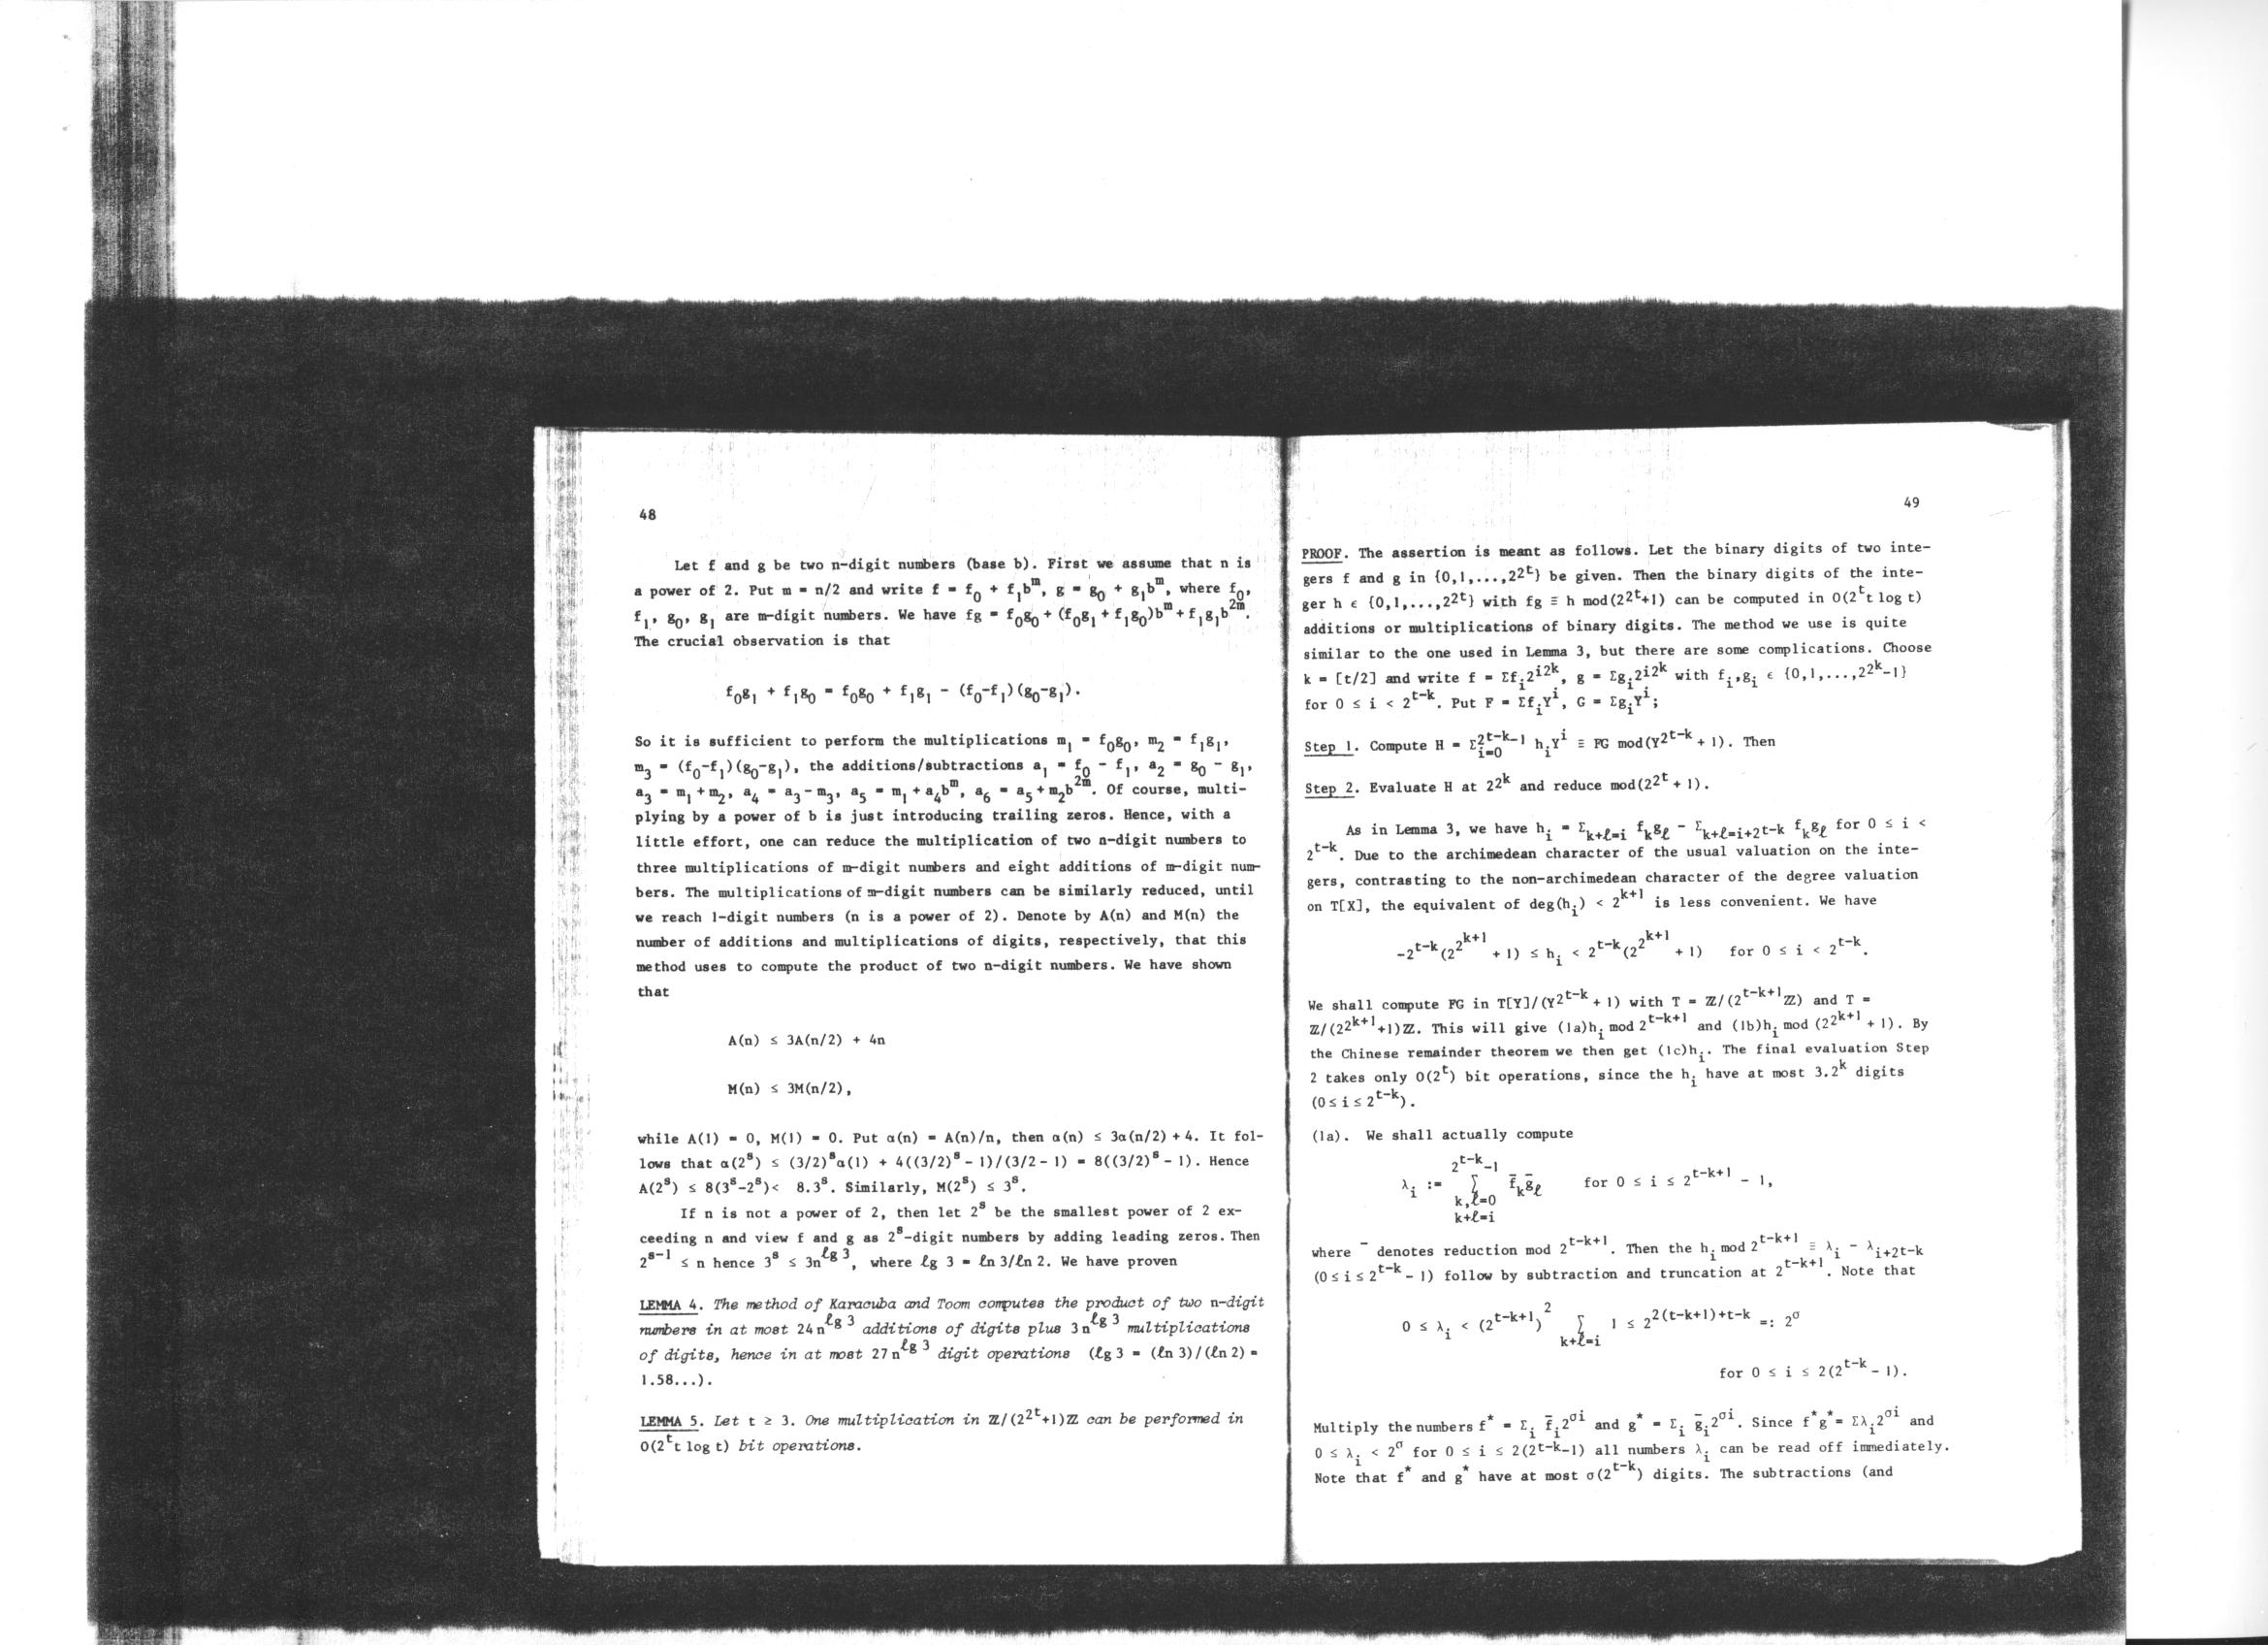 48
Let f and g be two n-digit numbers (base b). First we assume that n is
a power of 2. Put m = n/2 and write f = f₀ + f₁bᵐ, g = g₀ + g₁bᵐ, where f₀,
f₁, g₀, g₁ are m-digit numbers. We have fg = f₀g₀ + (f₀g₁ + f₁g₀)bᵐ + f₁g₁b²ᵐ.
The crucial observation is that
f₀g₁ + f₁g₀ = f₀g₀ + f₁g₁ - (f₀-f₁)(g₀-g₁).
So it is sufficient to perform the multiplications m₁ = f₀g₀, m₂ = f₁g₁,
m₃ = (f₀-f₁)(g₀-g₁), the additions/subtractions a₁ = f₀ - f₁, a₂ = g₀ - g₁,
a₃ = m₁ + m₂, a₄ = a₃ - m₃, a₅ = m₁ + a₄bᵐ, a₆ = a₅ + m₂b²ᵐ. Of course, multi-
plying by a power of b is just introducing trailing zeros. Hence, with a
little effort, one can reduce the multiplication of two n-digit numbers to
three multiplications of m-digit numbers and eight additions of m-digit num-
bers. The multiplications of m-digit numbers can be similarly reduced, until
we reach 1-digit numbers (n is a power of 2). Denote by A(n) and M(n) the
number of additions and multiplications of digits, respectively, that this
method uses to compute the product of two n-digit numbers. We have shown
that
A(n) ≤ 3A(n/2) + 4n
M(n) ≤ 3M(n/2),
while A(1) = 0, M(1) = 0. Put α(n) = A(n)/n, then α(n) ≤ 3α(n/2) + 4. It fol-
lows that α(2ˢ) ≤ (3/2)ˢα(1) + 4((3/2)ˢ - 1)/(3/2 - 1) = 8((3/2)ˢ - 1). Hence
A(2ˢ) ≤ 8(3ˢ-2ˢ)< 8.3ˢ. Similarly, M(2ˢ) ≤ 3ˢ.
If n is not a power of 2, then let 2ˢ be the smallest power of 2 ex-
ceeding n and view f and g as 2ˢ-digit numbers by adding leading zeros. Then
2^{s-1} ≤ n hence 3ˢ ≤ 3n^{ℓg 3}, where ℓg 3 = ℓn 3/ℓn 2. We have proven
LEMMA 4. The method of Karacuba and Toom computes the product of two n-digit
numbers in at most 24 n^{ℓg 3} additions of digits plus 3 n^{ℓg 3} multiplications
of digits, hence in at most 27 n^{ℓg 3} digit operations (ℓg 3 = (ℓn 3)/(ℓn 2) =
1.58...).
LEMMA 5. Let t ≥ 3. One multiplication in ℤ/(2^{2^t}+1)ℤ can be performed in
O(2^t t log t) bit operations.
49
PROOF. The assertion is meant as follows. Let the binary digits of two inte-
gers f and g in {0,1,...,2^{2^t}} be given. Then the binary digits of the inte-
ger h ϵ {0,1,...,2^{2^t}} with fg ≡ h mod(2^{2^t}+1) can be computed in O(2^t t log t)
additions or multiplications of binary digits. The method we use is quite
similar to the one used in Lemma 3, but there are some complications. Choose
k = [t/2] and write f = Σf_i 2^{i2^k}, g = Σg_i 2^{i2^k} with f_i,g_i ϵ {0,1,...,2^{2^k}-1}
for 0 ≤ i < 2^{t-k}. Put F = Σf_i Y^i, G = Σg_i Y^i;
Step 1. Compute H = Σ_{i=0}^{2^{t-k}-1} h_i Y^i ≡ FG mod(Y^{2^{t-k}} + 1). Then
Step 2. Evaluate H at 2^{2^k} and reduce mod(2^{2^t} + 1).
As in Lemma 3, we have h_i = Σ_{k+ℓ=i} f_k g_ℓ - Σ_{k+ℓ=i+2^{t-k}} f_k g_ℓ for 0 ≤ i <
2^{t-k}. Due to the archimedean character of the usual valuation on the inte-
gers, contrasting to the non-archimedean character of the degree valuation
on T[X], the equivalent of deg(h_i) < 2^{k+1} is less convenient. We have
-2^{t-k}(2^{2^{k+1}} + 1) ≤ h_i < 2^{t-k}(2^{2^{k+1}} + 1) for 0 ≤ i < 2^{t-k}.
We shall compute FG in T[Y]/(Y^{2^{t-k}} + 1) with T = ℤ/(2^{t-k+1}ℤ) and T =
ℤ/(2^{2^{k+1}}+1)ℤ. This will give (1a)h_i mod 2^{t-k+1} and (1b)h_i mod (2^{2^{k+1}} + 1). By
the Chinese remainder theorem we then get (1c)h_i. The final evaluation Step
2 takes only O(2^t) bit operations, since the h_i have at most 3.2^k digits
(0 ≤ i ≤ 2^{t-k}).
(1a). We shall actually compute
λ_i := Σ_{k,ℓ=0, k+ℓ=i}^{2^{t-k}-1} f̄_k ḡ_ℓ for 0 ≤ i ≤ 2^{t-k+1} - 1,
where ¯ denotes reduction mod 2^{t-k+1}. Then the h_i mod 2^{t-k+1} ≡ λ_i - λ_{i+2^{t-k}}
(0 ≤ i ≤ 2^{t-k} - 1) follow by subtraction and truncation at 2^{t-k+1}. Note that
0 ≤ λ_i < (2^{t-k+1})² Σ_{k+ℓ=i} 1 ≤ 2^{2(t-k+1)+t-k} =: 2^σ
for 0 ≤ i ≤ 2(2^{t-k} - 1).
Multiply the numbers f* = Σ_i f̄_i 2^{σi} and g* = Σ_i ḡ_i 2^{σi}. Since f*g* = Σλ_i 2^{σi} and
0 ≤ λ_i < 2^σ for 0 ≤ i ≤ 2(2^{t-k}-1) all numbers λ_i can be read off immediately.
Note that f* and g* have at most σ(2^{t-k}) digits. The subtractions (and